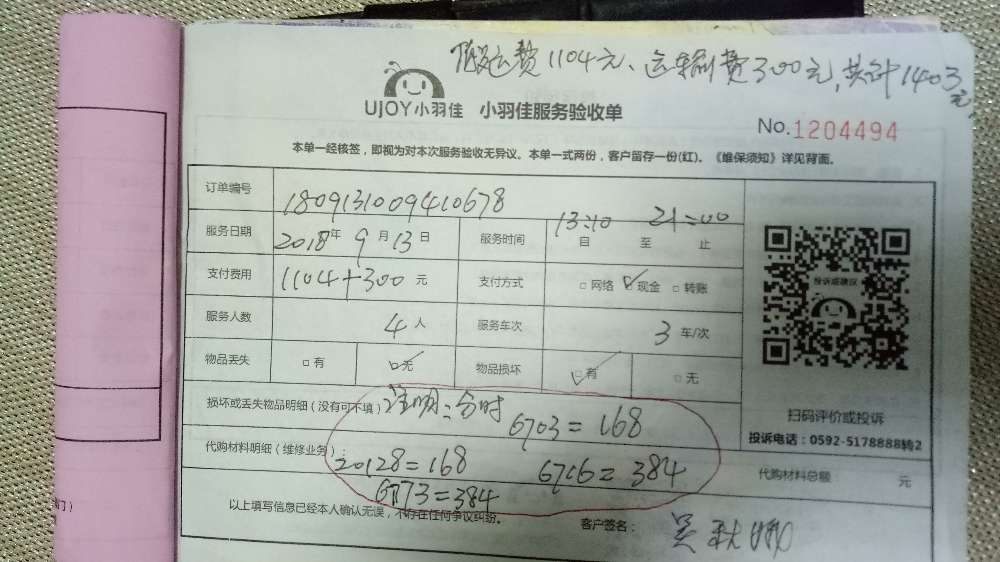 搬运费1104元、运输费300元,共计1403元
UJOY小羽佳 小羽佳服务验收单
No.1204494
本单一经核签，即视为对本次服务验收无异议。本单一式两份，客户留存一份(红)。《维保须知》详见背面。
订单编号 1809131009410678
服务日期 2018年9月13日 服务时间 13:10 自 至 21:00 止
支付费用 1104+300 元 支付方式 □网络 ☑现金 □转账
投诉或建议
服务人数 4人 服务车次 3车/次
物品丢失 □有 ☑无 物品损坏 ☑有 □无
损坏或丢失物品明细（没有可不填） 注明：分时 6703=168
扫码评价或投诉
投诉电话：0592-5178888转2
代购材料明细（维修业务）： 20128=168 6716=384 代购材料总额 元
6773=384
以上填写信息已经本人确认无误，不存在任何争议纠纷。 客户签名：